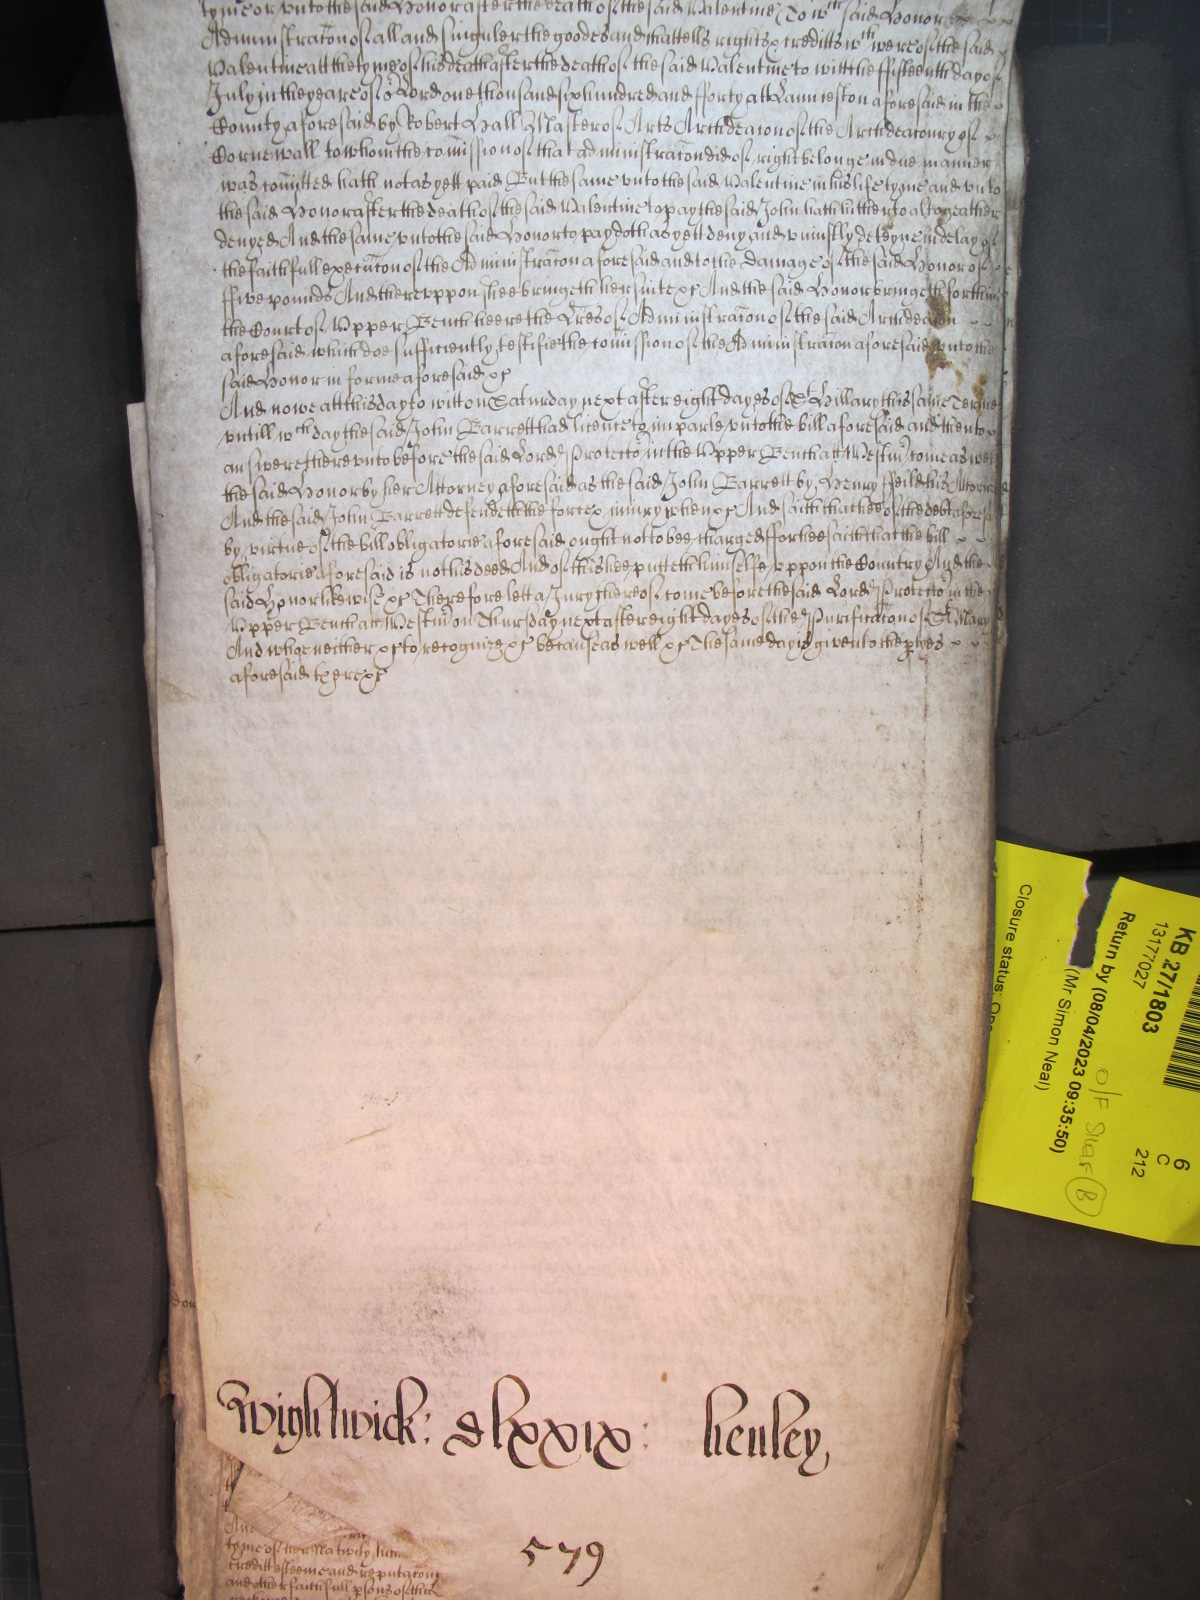 tyme or unto the said Honor after the death of the said Valentine To wch said Honor
Administracon of all and singuler the goodes and chattells rights & creditts wch were of the said
Valentine att the tyme of his death after the death of the said Valentine to witt the ffifteenth day of
July in the yeare of or Lord one thousand six hundred and fforty att Launceston aforesaid in the
County aforesaid by Robert Hall Master of Arts Archdeacon of the Archdeaconry of
Cornewall to whom the comission of that administracon did of right belonge in due manner
was comitted hath not as yett paid But the same unto the said Valentine in his life tyme and unto
the said Honor after the death of the said Valentine to pay the said John hath hitherto altogeather
denyed And the same unto the said Honor to pay doth as yett deny and uniustly deteyne in delay of
the faithfull execucon of the Administracon aforesaid and to the damage of the said Honor of
ffive pounds And thereuppon shee bringeth her suite &c And the said Honor bringeth forth in
the Court of Upper Bench heere the Lres of Administracon of the said Archdeacon
aforesaid which doe sufficiently testifie the comission of the Administracon aforesaid unto the
said Honor in forme aforesaid &c
And nowe att this day to witt on Saturday next after eight dayes of St Hillary this same Terme
untill wch day the said John Barrett had licence to imparle unto the bill aforesaid and then to
answere thereunto before the said Lord Protector in the Upper Bench att Westmr come as well
the said Honor by her Attorney aforesaid as the said John Barrett by Henry ffeild his Attorney
And the said John Barrett defendeth the force & iniury when &c And saith that hee of the debt aforesaid
by virtue of the bill obligatorie aforesaid ought not to bee charged ffor hee saith that the bill
obligatorie aforesaid is not his deed And of this hee putteth himselfe uppon the Country And the
said Honor likewise &c Therefore lett a Jury thereof come before the said Lord Protector in the
Upper Bench att Westmr on Thursday next after eight dayes of the Purificacon of St Mary
And whoe neither &c to recognize &c because as well &c The same day is given to the ptyes
aforesaid there &c
Wightwick: dlxxix: henley
579
And
tyme of her Nativity
creditt esteeme and reputacon
and other faithfull psons of this
KB 27/1803
13177027
Return by (08/04/2023 09:35:50)
(Mr Simon Neal)
Closure status: Op
O/F Shelf B
6
C
212